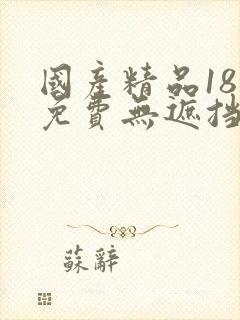 國產精品18
免費無遮挡
蘇辭